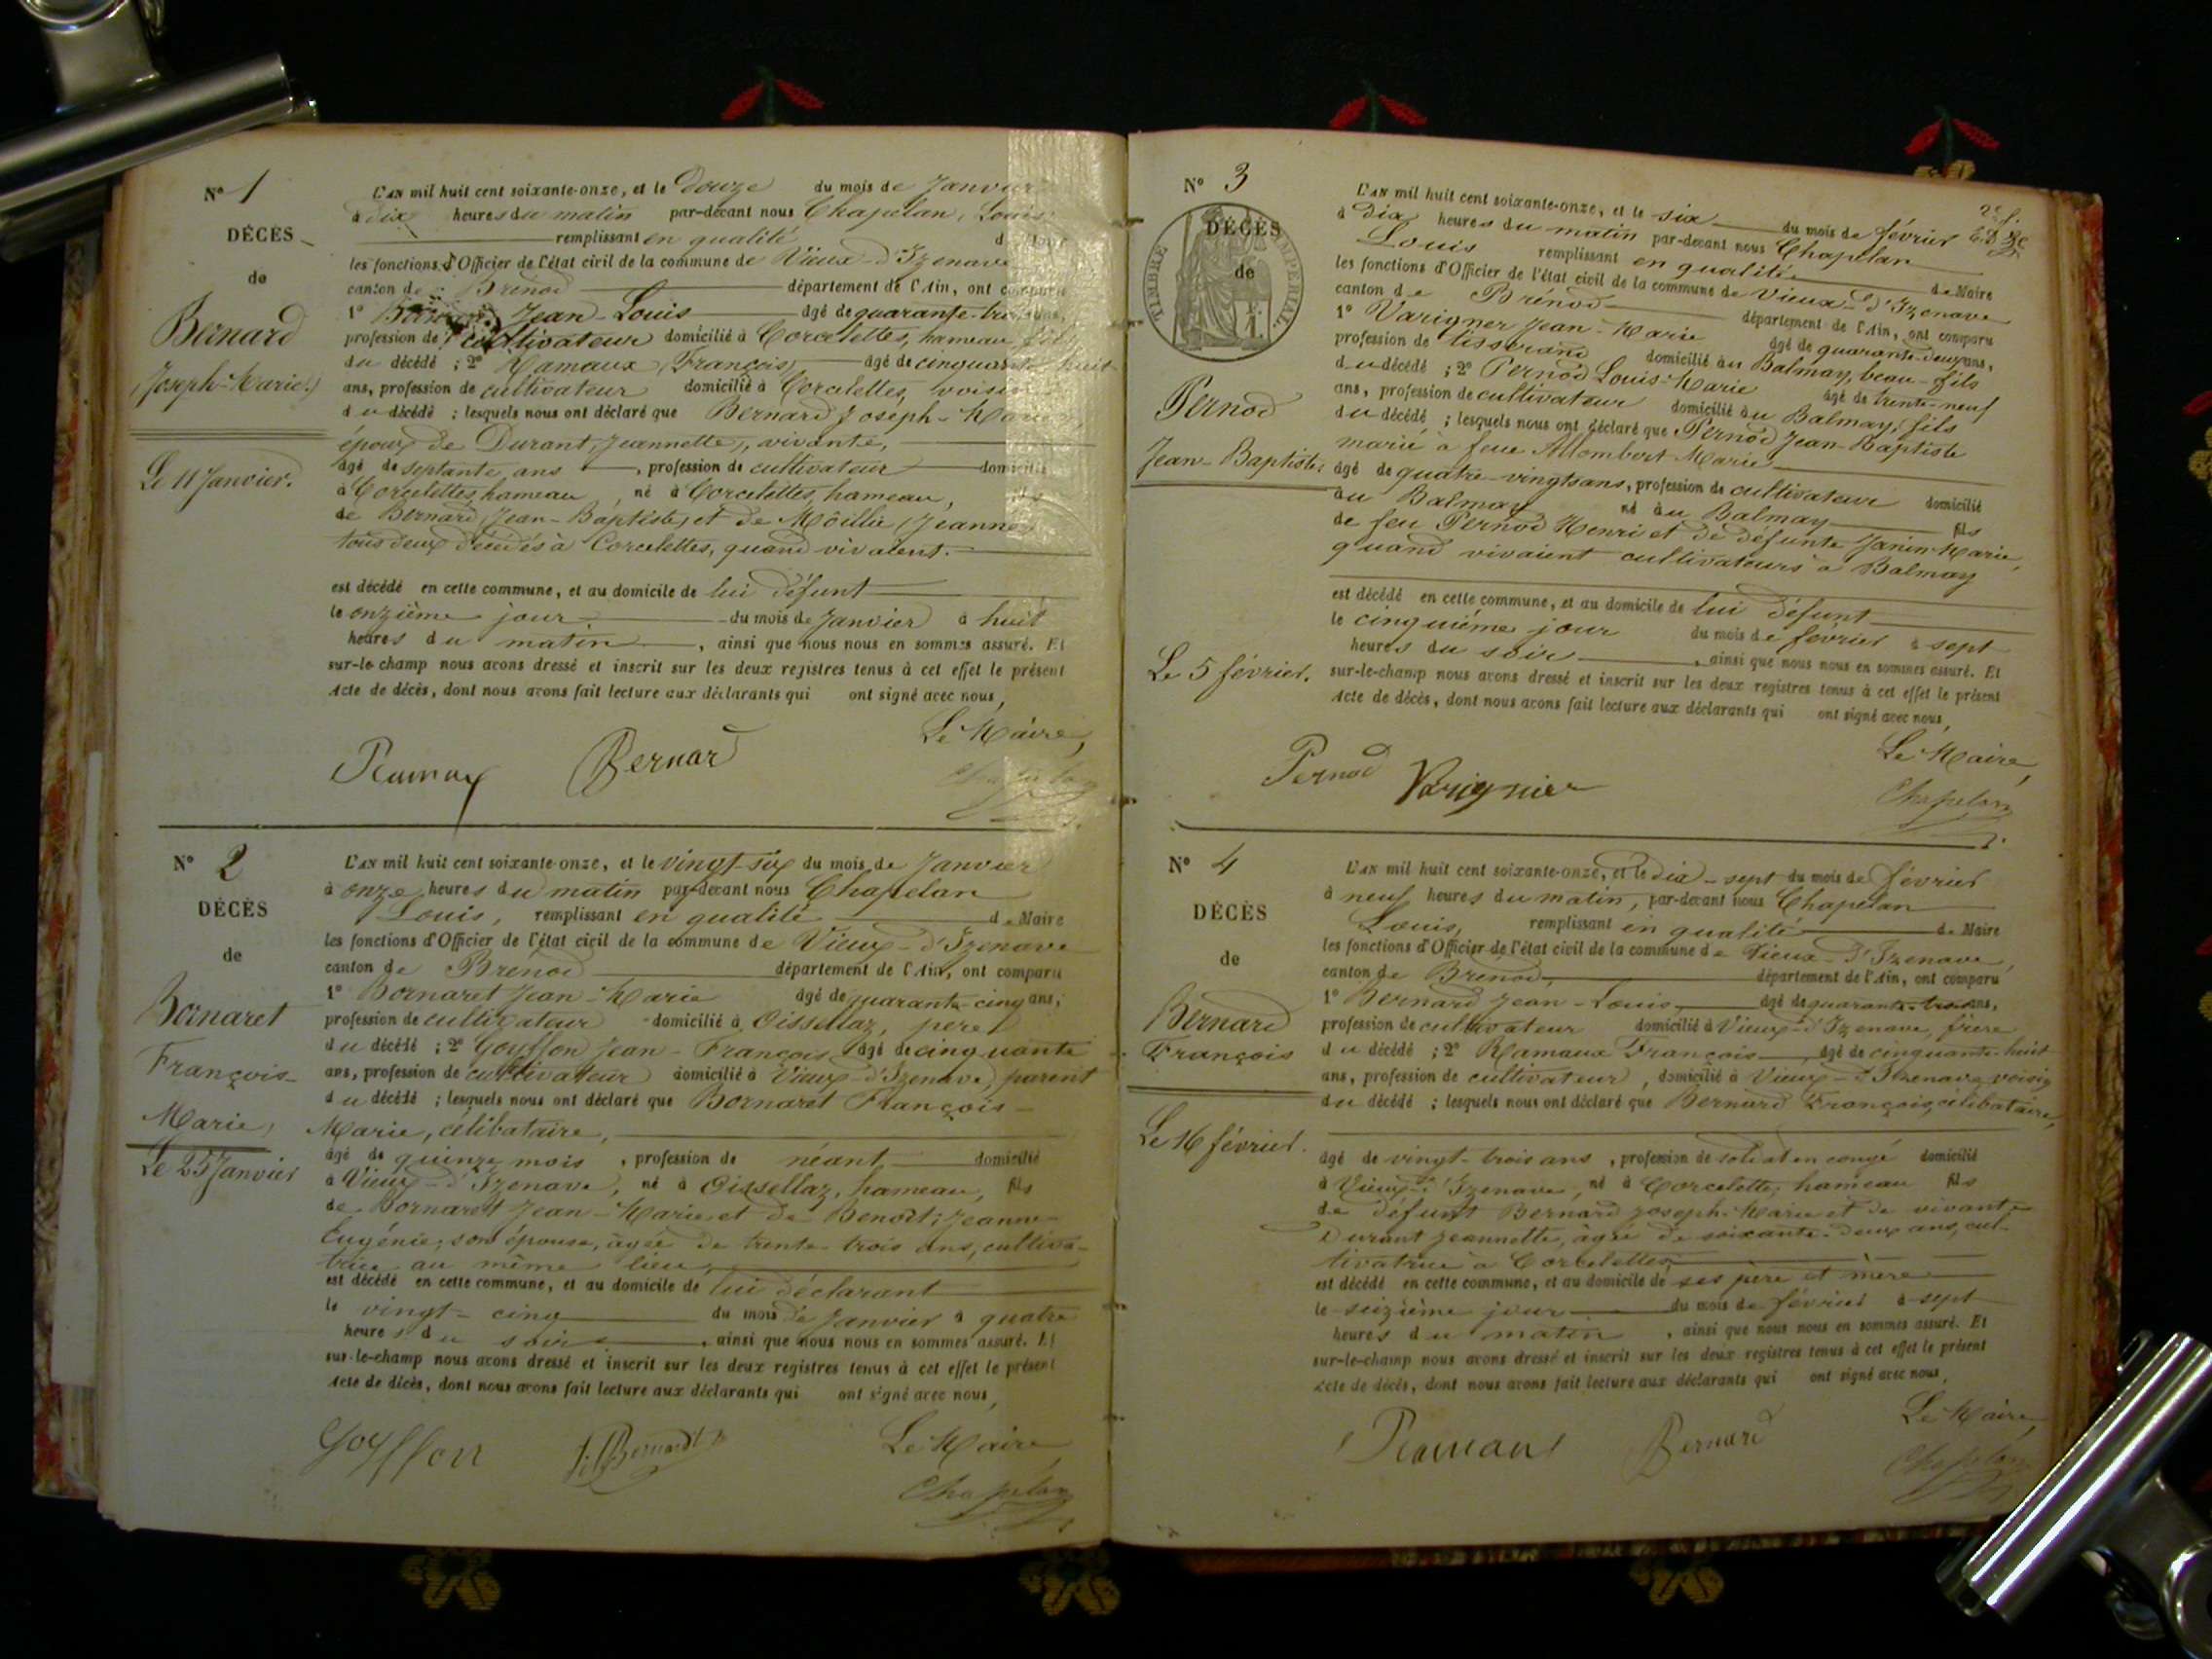 N° 1
DÉCÈS
de
Bernard
Joseph-Marie
Le 11 Janvier.
L'AN mil huit cent soixante-onze, et le Douze du mois de Janvier
à dix heures du matin par-devant nous Chapelan, Louis
remplissant en qualité
les fonctions d'Officier de l'état civil de la commune de Vieux-d'Izenave
canton de Brénod département de l'Ain, ont comparu
1° Jean-Louis âgé de quarante-trois ans,
profession de cultivateur domicilié à Corcelettes, hameau, fils
du décédé ; 2° Ramaux, François, âgé de cinquante huit
ans, profession de cultivateur domicilié à Corcelettes, voisin
du décédé ; lesquels nous ont déclaré que Bernard Joseph-Marie
époux de Durant, Jeannette, vivante,
âgé de septante ans, profession de cultivateur domicilié
à Corcelettes, hameau, né à Corcelettes, hameau, fils
de Bernard, Jean-Baptiste, et de Môillie, Jeanne
tous deux décédés à Corcelettes, quand vivaient.
est décédé en cette commune, et au domicile de lui défunt
le onzième jour du mois de Janvier à huit
heures du matin, ainsi que nous nous en sommes assuré. Et
sur-le-champ nous avons dressé et inscrit sur les deux registres tenus à cet effet le présent
Acte de décès, dont nous avons fait lecture aux déclarants qui ont signé avec nous,
Le Maire,
Ramax Bernard
Chapelan
N° 2
DÉCÈS
de
Bornaret
François-
Marie,
Le 25 Janvier
L'AN mil huit cent soixante-onze, et le vingt-six du mois de Janvier
à onze heures du matin par-devant nous Chapelan
Louis, remplissant en qualité de Maire
les fonctions d'Officier de l'état civil de la commune de Vieux-d'Izenave
canton de Brénod département de l'Ain, ont comparu
1° Bornaret Jean-Marie âgé de quarante-cinq ans,
profession de cultivateur domicilié à Oissellaz, père
du décédé ; 2° Goyffon Jean-François âgé de cinquante
ans, profession de cultivateur domicilié à Vieux-d'Izenave, parent
du décédé ; lesquels nous ont déclaré que Bornaret François-
Marie, célibataire,
âgé de quinze mois, profession de néant domicilié
à Vieux-d'Izenave, né à Oissellaz, hameau, fils
de Bornaret Jean-Marie et de Benoît, Jeanne-
Eugénie, son épouse, âgée de trente-trois ans, cultiva-
trice au même lieu,
est décédé en cette commune, et au domicile de lui déclarant
le vingt-cinq du mois de Janvier à quatre
heures du soir, ainsi que nous nous en sommes assuré. Et
sur-le-champ nous avons dressé et inscrit sur les deux registres tenus à cet effet le présent
Acte de décès, dont nous avons fait lecture aux déclarants qui ont signé avec nous,
Le Maire
Goyffon
Chapelan
N° 3
TIMBRE IMPÉRIAL
DÉCÈS
de
Pernod
Jean-Baptiste
Le 5 février.
L'AN mil huit cent soixante-onze, et le six du mois de février
à dix heures du matin par-devant nous Chapelan
Louis remplissant en qualité de Maire
les fonctions d'Officier de l'état civil de la commune de Vieux-d'Izenave
canton de Brénod département de l'Ain, ont comparu
1° Varigner Jean-Marie âgé de quarante-deux ans,
profession de tisserand domicilié au Balmay, beau-fils
du décédé ; 2° Pernod Louis-Marie âgé de trente-neuf
ans, profession de cultivateur domicilié au Balmay, fils
du décédé ; lesquels nous ont déclaré que Pernod Jean-Baptiste
marié à feue Allombert Marie
âgé de quatre-vingts ans, profession de cultivateur domicilié
au Balmay né au Balmay fils
de feu Pernod Henri et de défunte Janin Marie,
quand vivaient cultivateurs à Balmay
est décédé en cette commune, et au domicile de lui défunt
le cinquième jour du mois de février à sept
heures du soir, ainsi que nous nous en sommes assuré. Et
sur-le-champ nous avons dressé et inscrit sur les deux registres tenus à cet effet le présent
Acte de décès, dont nous avons fait lecture aux déclarants qui ont signé avec nous,
Le Maire,
Pernod Varignier
Chapelan
N° 4
DÉCÈS
de
Bernard
François
Le 16 février.
L'AN mil huit cent soixante-onze, et le dix-sept du mois de février
à neuf heures du matin, par-devant nous Chapelan
Louis, remplissant en qualité de Maire
les fonctions d'Officier de l'état civil de la commune de Vieux-d'Izenave,
canton de Brénod, département de l'Ain, ont comparu
1° Bernard Jean-Louis, âgé de quarante-trois ans,
profession de cultivateur domicilié à Vieux-d'Izenave, frère
du décédé ; 2° Ramaux François, âgé de cinquante-huit
ans, profession de cultivateur, domicilié à Vieux-d'Izenave, voisin
du décédé ; lesquels nous ont déclaré que Bernard François, célibataire,
âgé de vingt-trois ans, profession de soldat en congé domicilié
à Vieux-d'Izenave, né à Corcelette, hameau fils
de défunt Bernard Joseph-Marie et de vivante
Durant Jeannette, âgée de soixante-deux ans, cul-
tivatrice à Corcelettes
est décédé en cette commune, et au domicile de ses père et mère
le seizième jour du mois de février à sept
heures du matin, ainsi que nous nous en sommes assuré. Et
sur-le-champ nous avons dressé et inscrit sur les deux registres tenus à cet effet le présent
Acte de décès, dont nous avons fait lecture aux déclarants qui ont signé avec nous,
Le Maire
Ramaux Bernard
Chapelan